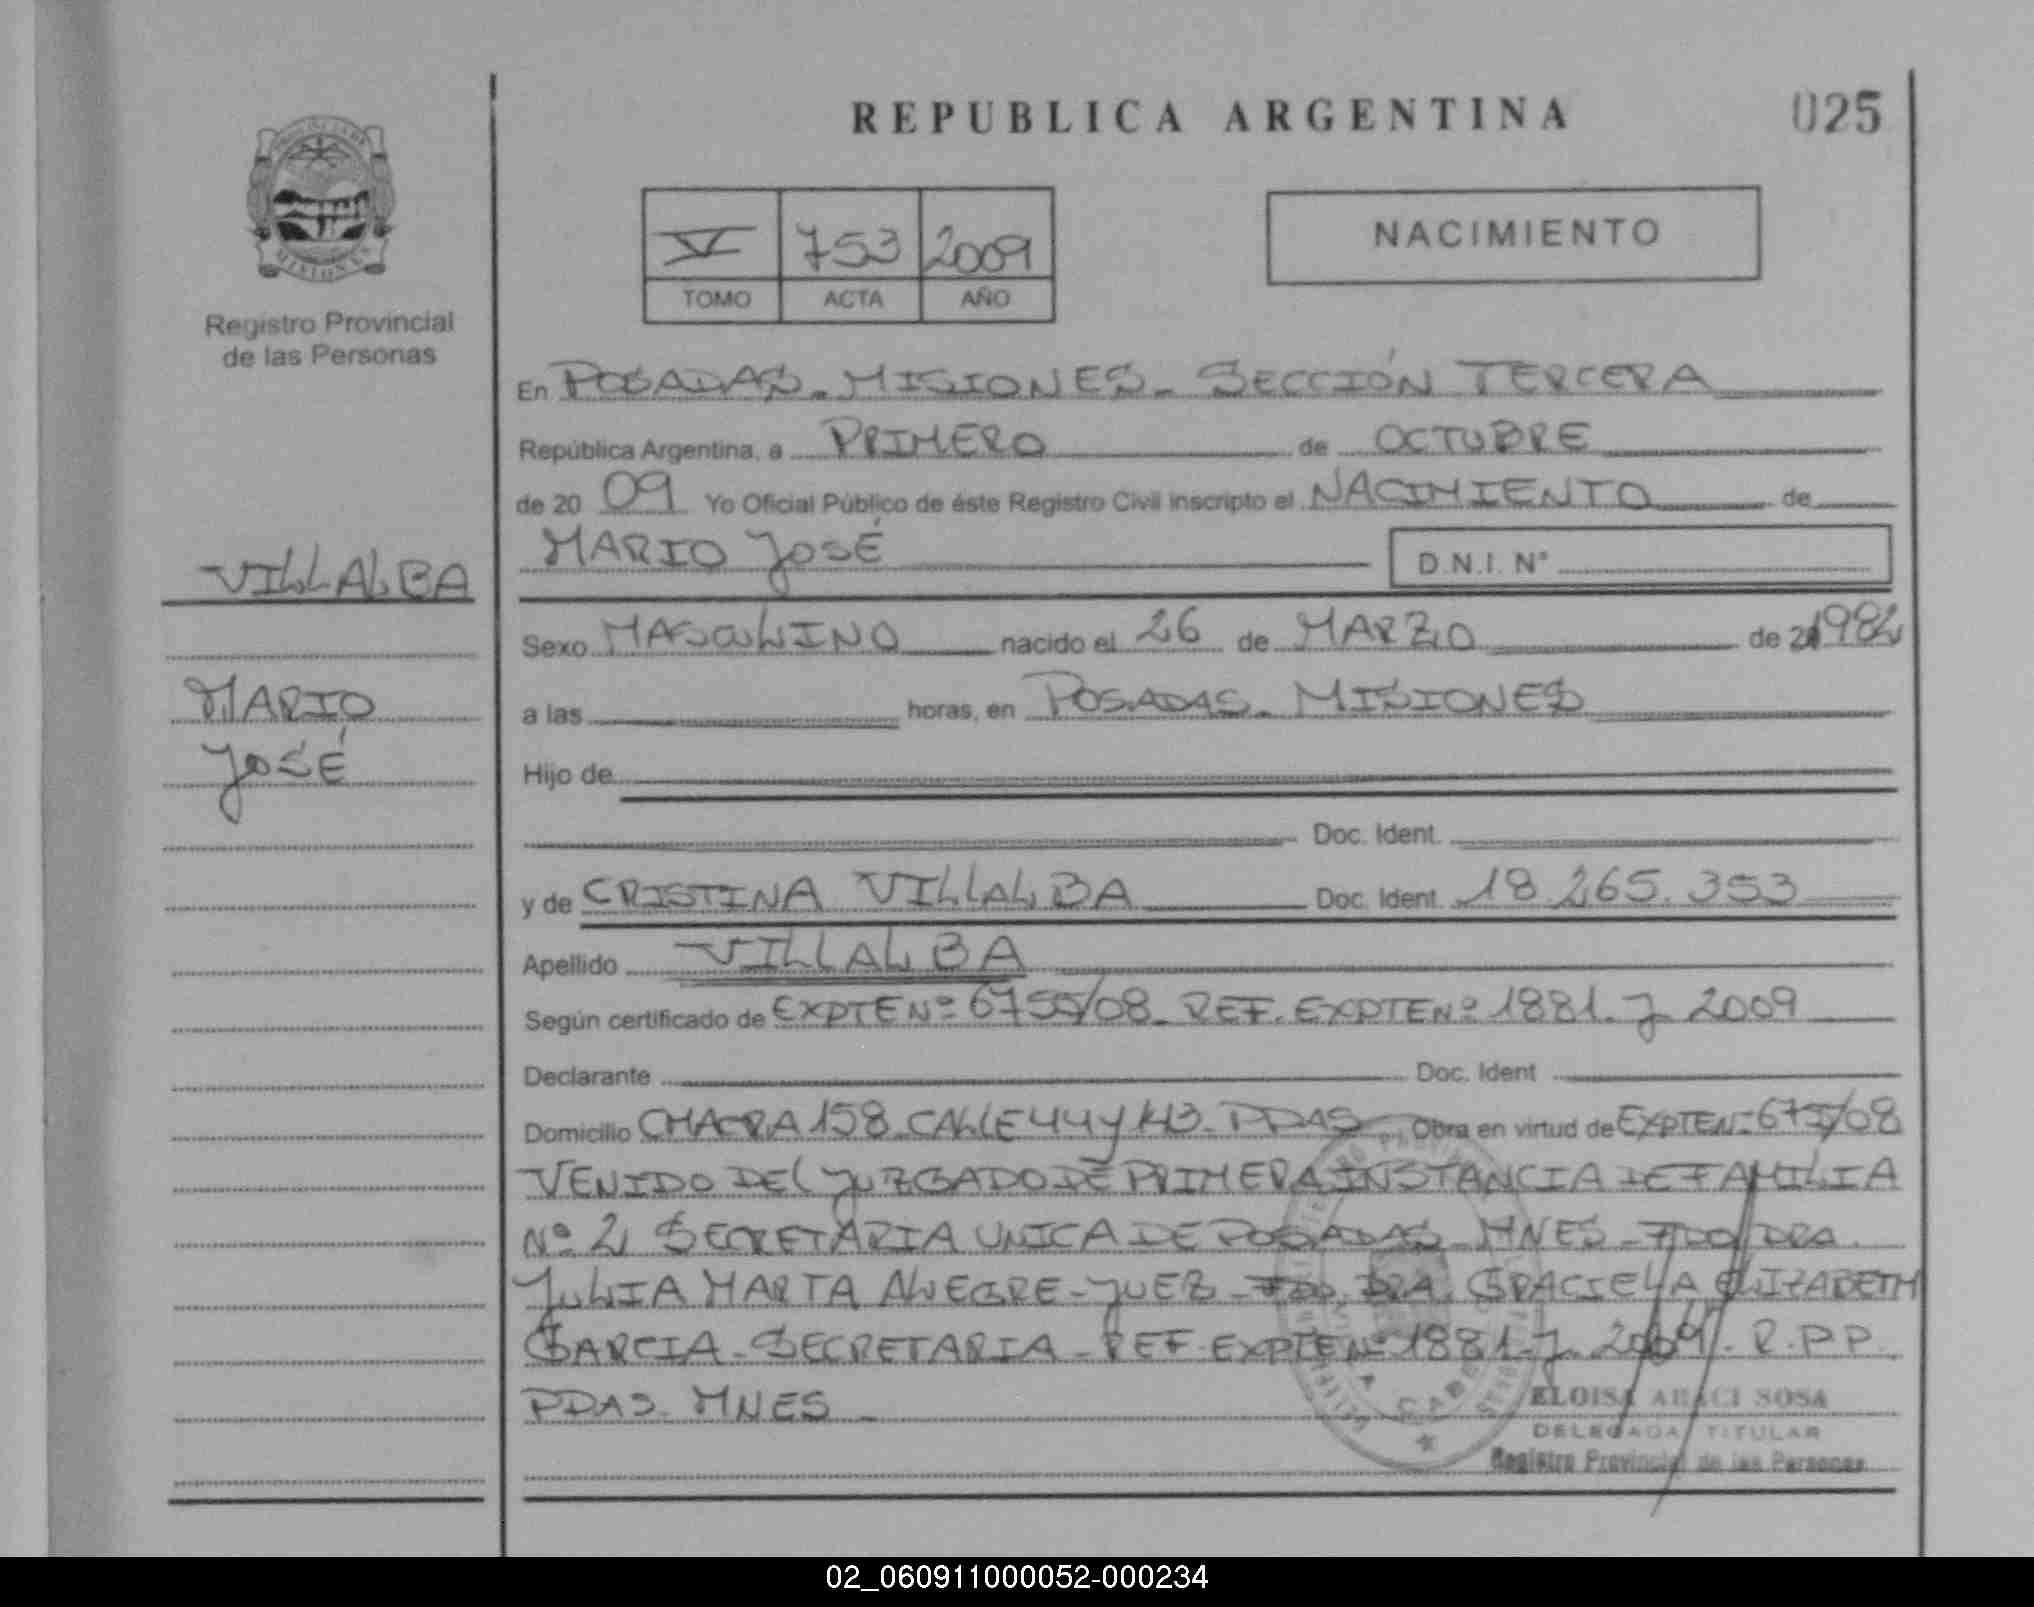 REPUBLICA ARGENTINA
025
V 753 2009
TOMO ACTA AÑO
NACIMIENTO
MISIONES
Registro Provincial
de las Personas
VILLALBA
MARIO
JOSÉ
En POSADAS - MISIONES - SECCIÓN TERCERA
República Argentina, a PRIMERO de OCTUBRE
de 20 09 Yo Oficial Público de éste Registro Civil inscripto el NACIMIENTO de
MARIO JOSÉ D.N.I. Nº
Sexo MASCULINO nacido el 26 de MARZO de 1982
a las horas, en POSADAS - MISIONES
Hijo de
Doc. Ident.
y de CRISTINA VILLALBA Doc. Ident. 18.265.353
Apellido VILLALBA
Según certificado de EXPTE Nº 6755/08 - REF. EXPTE Nº 1881. J. 2009
Declarante Doc. Ident
Domicilio CHACRA 158 - CALLE 44 y 143 - PDAS Obra en virtud de EXPTE Nº 675/08
VENIDO DEL JUZGADO DE PRIMERA INSTANCIA DE FAMILIA
Nº 2 SECRETARIA UNICA DE POSADAS - MNES - FDO DRA.
JULIA MARTA ALEGRE - JUEZ - FDO. DRA. GRACIELA ELIZABETH
GARCIA - SECRETARIA - REF. EXPTE Nº 1881. J. 2009. R.P.P.
PDAS. MNES -
ELOISA ARACI SOSA
DELEGADA TITULAR
Registro Provincial de las Personas
02_060911000052-000234